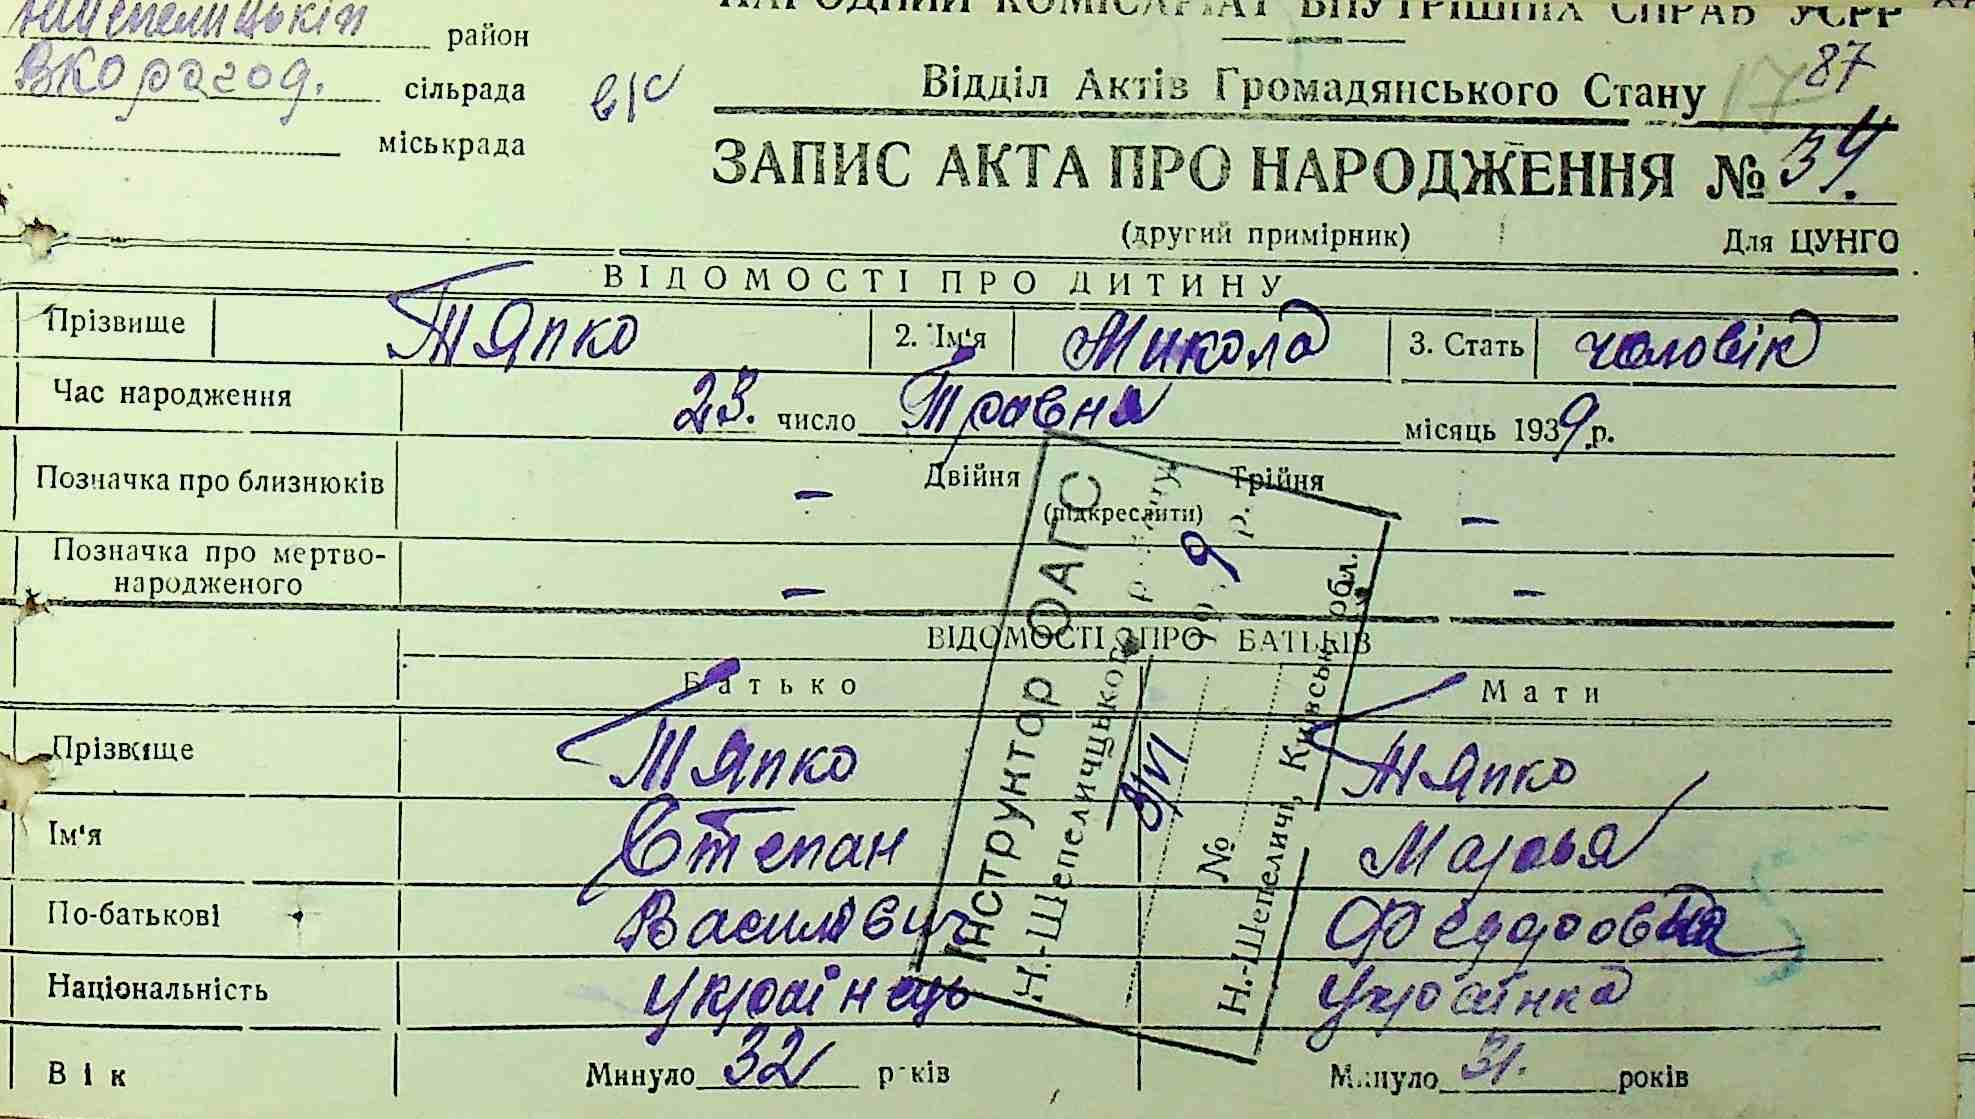 НШепелицькій район
НАРОДНИЙ КОМІСАРІАТ ВНУТРІШНІХ СПРАВ УСРР
ВКорагод. сільрада
Відділ Актів Громадянського Стану 17 87
міськрада
ЗАПИС АКТА ПРО НАРОДЖЕННЯ № 34.
(другий примірник) Для ЦУНГО
ВІДОМОСТІ ПРО ДИТИНУ
Прізвище Тяпко 2. Ім'я Микола 3. Стать чоловік
Час народження 23. число Травня місяць 1939 р.
Позначка про близнюків – Двійня Трійня –
(підкреслити)
Позначка про мертво-
народженого – –
ВІДОМОСТІ ПРО БАТЬКІВ
Батько Мати
Прізвище Тяпко Тяпко
Ім'я Степан Марья
По-батькові Василівич Феддоровна
Національність українець Українка
Вік Минуло 32 років Минуло 31. років
Інструктор ОАГС
Н.-Шепеличцького р-ну
8/VI 9 р.
№
Н.-Шепеличі, Київськ. обл.